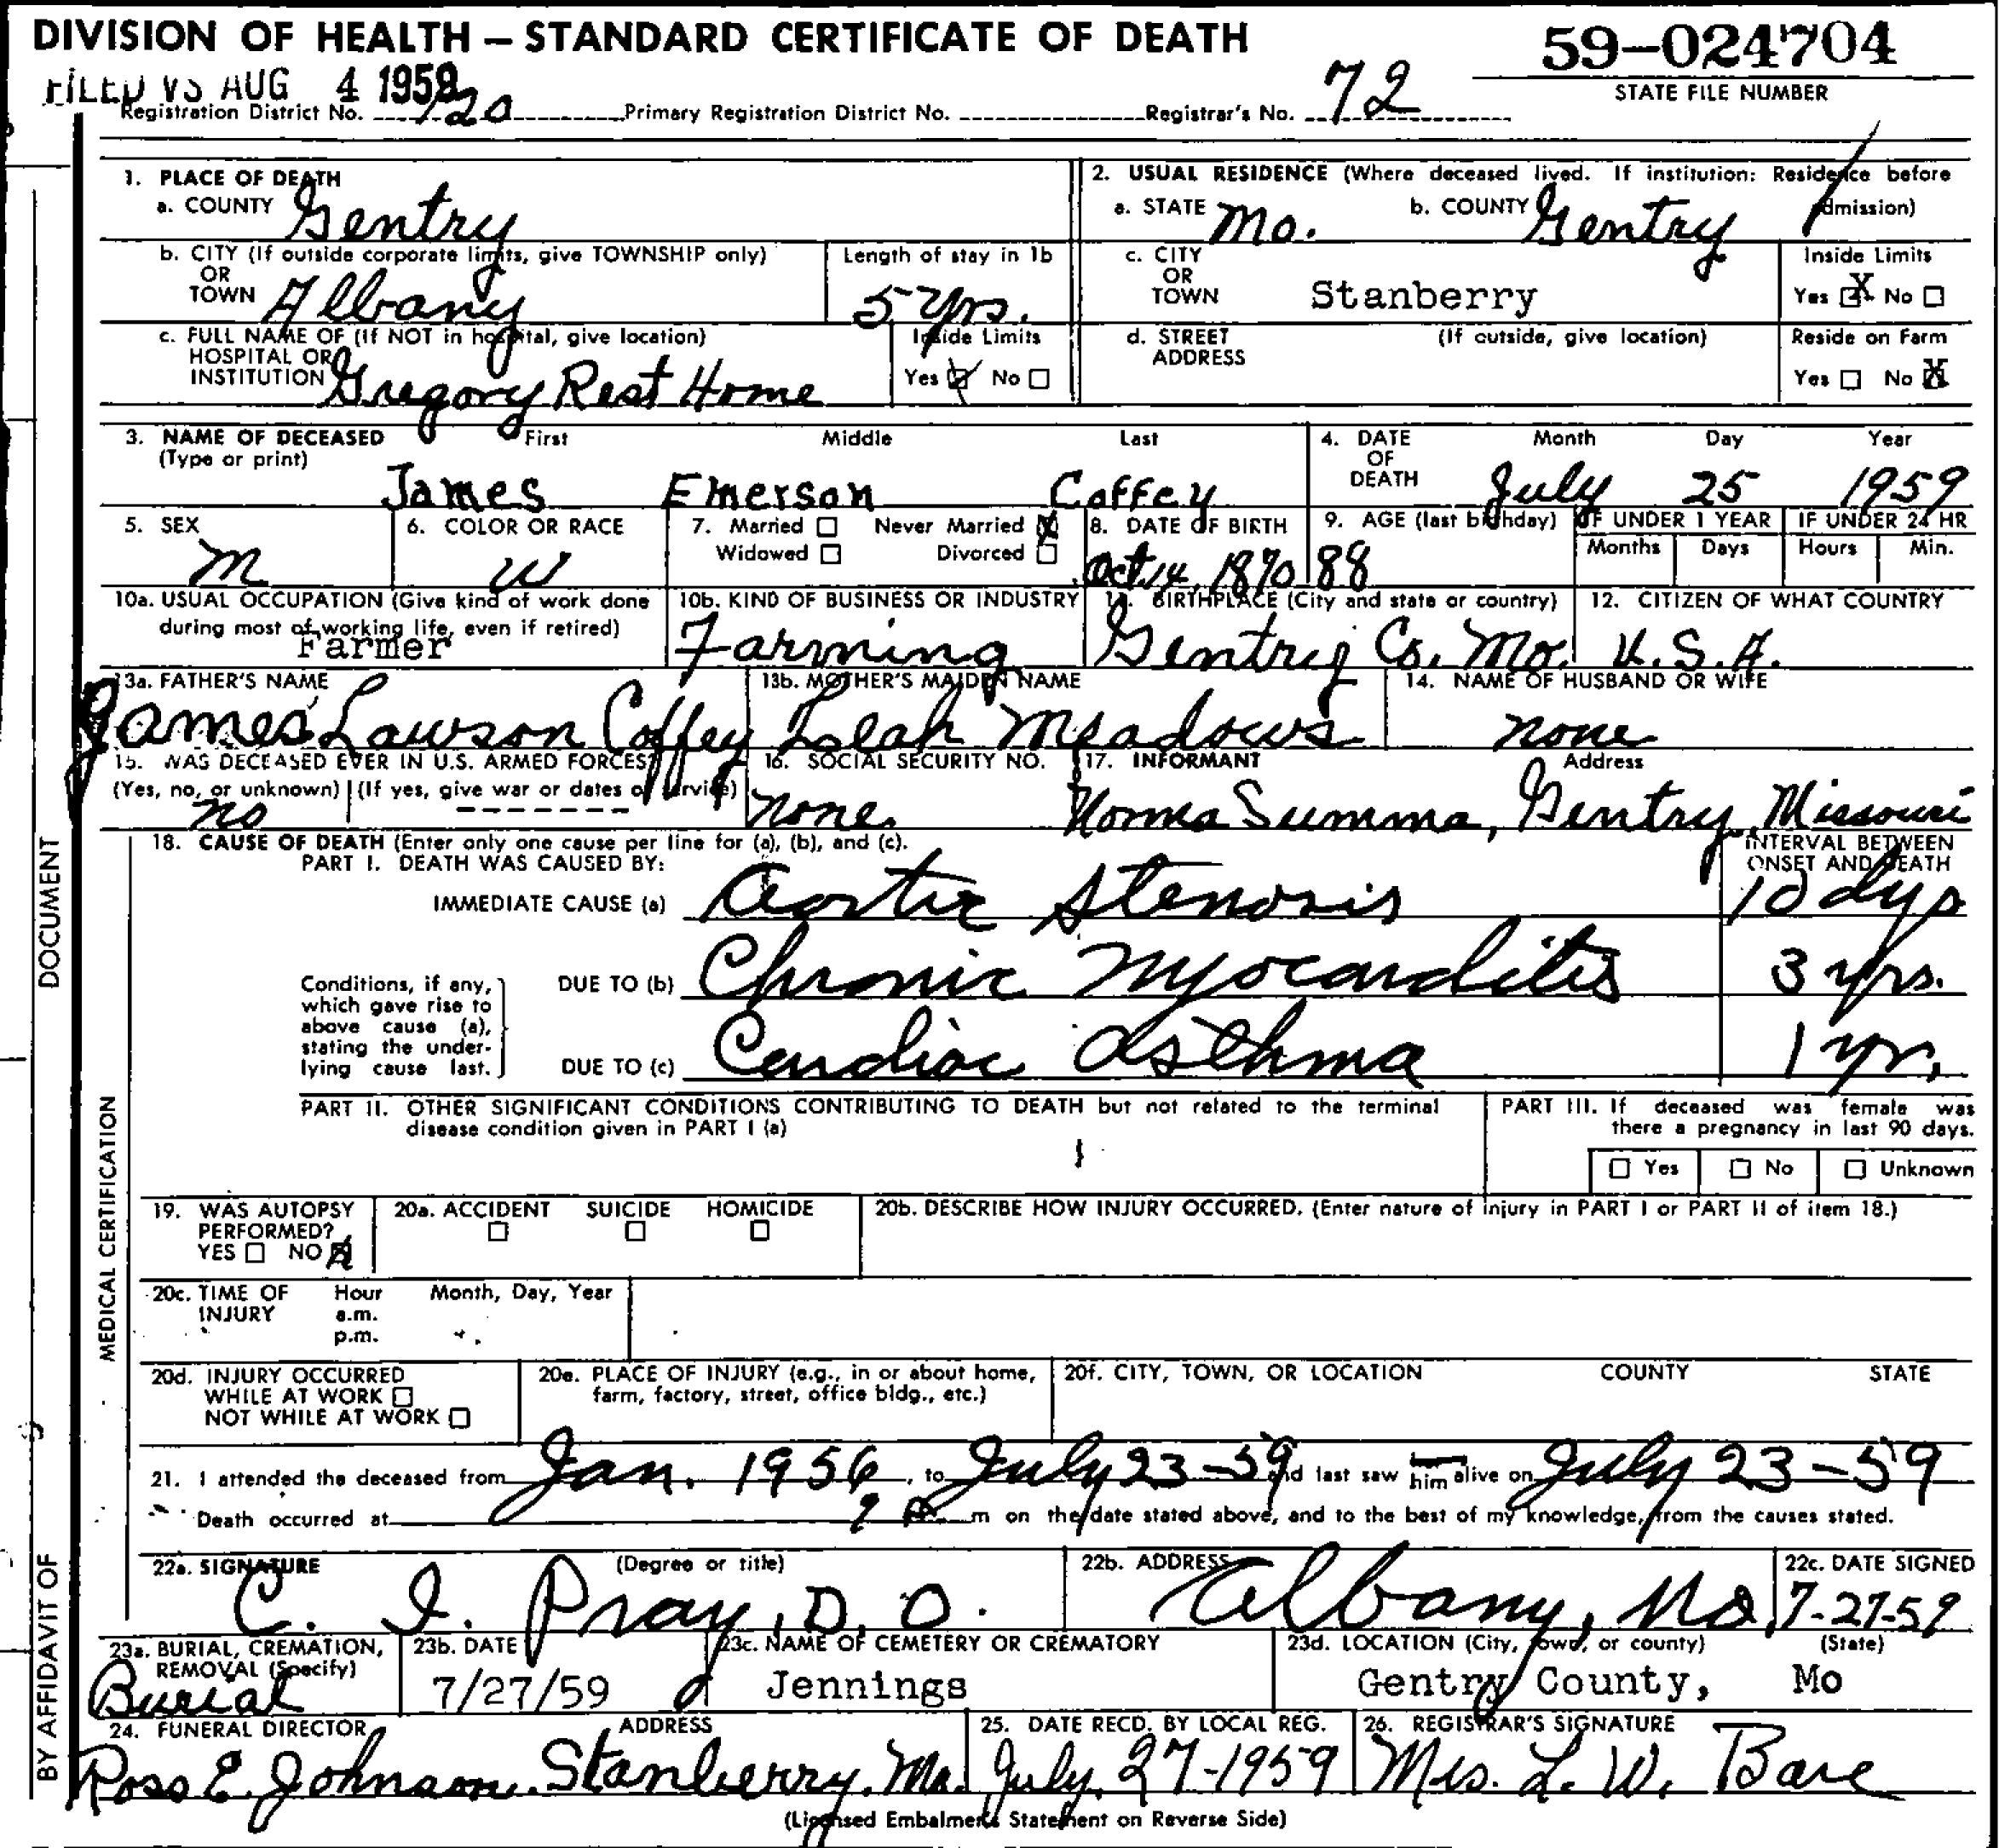 DIVISION OF HEALTH – STANDARD CERTIFICATE OF DEATH 59-024704
FILED VS AUG 4 1959 STATE FILE NUMBER
Registration District No. 120 Primary Registration District No. Registrar's No. 72
1. PLACE OF DEATH
a. COUNTY Gentry
2. USUAL RESIDENCE (Where deceased lived. If institution: Residence before admission)
a. STATE Mo. b. COUNTY Gentry
b. CITY (If outside corporate limits, give TOWNSHIP only) OR TOWN Albany
Length of stay in 1b 5 yrs.
c. CITY OR TOWN Stanberry
Inside Limits Yes X No
c. FULL NAME OF (If NOT in hospital, give location)
HOSPITAL OR INSTITUTION Gregory Rest Home
Inside Limits Yes No
d. STREET ADDRESS (If outside, give location)
Reside on Farm Yes No X
3. NAME OF DECEASED (Type or print) First Middle Last
James Emerson Coffey
4. DATE OF DEATH Month Day Year
July 25 1959
5. SEX M
6. COLOR OR RACE W
7. Married Never Married X
Widowed Divorced
8. DATE OF BIRTH Oct. 14, 1870
9. AGE (last birthday) 88
IF UNDER 1 YEAR Months Days
IF UNDER 24 HR Hours Min.
10a. USUAL OCCUPATION (Give kind of work done during most of working life, even if retired)
Farmer
10b. KIND OF BUSINESS OR INDUSTRY
Farming
11. BIRTHPLACE (City and state or country)
Gentry Co. Mo.
12. CITIZEN OF WHAT COUNTRY
U.S.A.
13a. FATHER'S NAME
James Lawson Coffey
13b. MOTHER'S MAIDEN NAME
Leah Meadows
14. NAME OF HUSBAND OR WIFE
none
15. WAS DECEASED EVER IN U.S. ARMED FORCES?
(Yes, no, or unknown) (If yes, give war or dates of service)
no -------
16. SOCIAL SECURITY NO.
none.
17. INFORMANT Address
Summa, Gentry, Missouri
18. CAUSE OF DEATH (Enter only one cause per line for (a), (b), and (c).
PART I. DEATH WAS CAUSED BY:
INTERVAL BETWEEN ONSET AND DEATH
IMMEDIATE CAUSE (a) Aortic Stenosis 10 dys
Conditions, if any, which gave rise to above cause (a), stating the underlying cause last.
DUE TO (b) Chronic Myocarditis 3 yrs.
DUE TO (c) Cardiac Asthma 1 yr.
PART II. OTHER SIGNIFICANT CONDITIONS CONTRIBUTING TO DEATH but not related to the terminal disease condition given in PART I (a)
PART III. If deceased was female was there a pregnancy in last 90 days.
Yes No Unknown
19. WAS AUTOPSY PERFORMED?
YES NO X
20a. ACCIDENT SUICIDE HOMICIDE
20b. DESCRIBE HOW INJURY OCCURRED. (Enter nature of injury in PART I or PART II of item 18.)
20c. TIME OF INJURY Hour a.m. p.m. Month, Day, Year
20d. INJURY OCCURRED
WHILE AT WORK
NOT WHILE AT WORK
20e. PLACE OF INJURY (e.g., in or about home, farm, factory, street, office bldg., etc.)
20f. CITY, TOWN, OR LOCATION COUNTY STATE
21. I attended the deceased from Jan. 1956, to July 23-59 and last saw him alive on July 23-59
Death occurred at m on the date stated above, and to the best of my knowledge, from the causes stated.
22a. SIGNATURE (Degree or title)
C. I. Pray, D.O.
22b. ADDRESS
Albany, Mo.
22c. DATE SIGNED
7-27-59
23a. BURIAL, CREMATION, REMOVAL (Specify)
Burial
23b. DATE
7/27/59
23c. NAME OF CEMETERY OR CREMATORY
Jennings
23d. LOCATION (City, town, or county) (State)
Gentry County, Mo
24. FUNERAL DIRECTOR ADDRESS
Ross E. Johnson. Stanberry, Mo.
25. DATE RECD. BY LOCAL REG.
July 27-1959
26. REGISTRAR'S SIGNATURE
Mrs. L. W. Bare
(Licensed Embalmer's Statement on Reverse Side)
DOCUMENT
MEDICAL CERTIFICATION
BY AFFIDAVIT OF